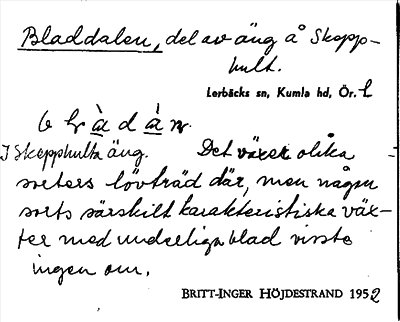 Bladdalen, del av äng å Skepp-
hult.
Lerbäcks sn, Kumla hd, Ör. l
I Skepphults äng. Det växer olika
sorters lövträd där, men någon
sorts särskilt karakteristiska väx-
ter med underliga blad visste
ingen om.
BRITT-INGER HÖJDESTRAND 1952